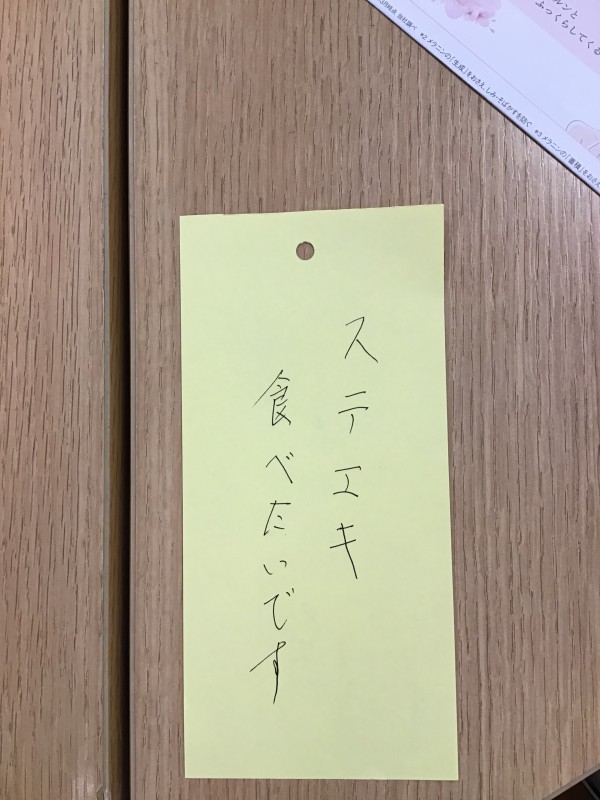 ステエキ
食べたいです
ルンと
ふっくらしてくる
3月時点 当社調べ *2 メラニンの「生成」をおさえ、しみ・そばかすを防ぐ *3 メラニンの「蓄積」をおさえ